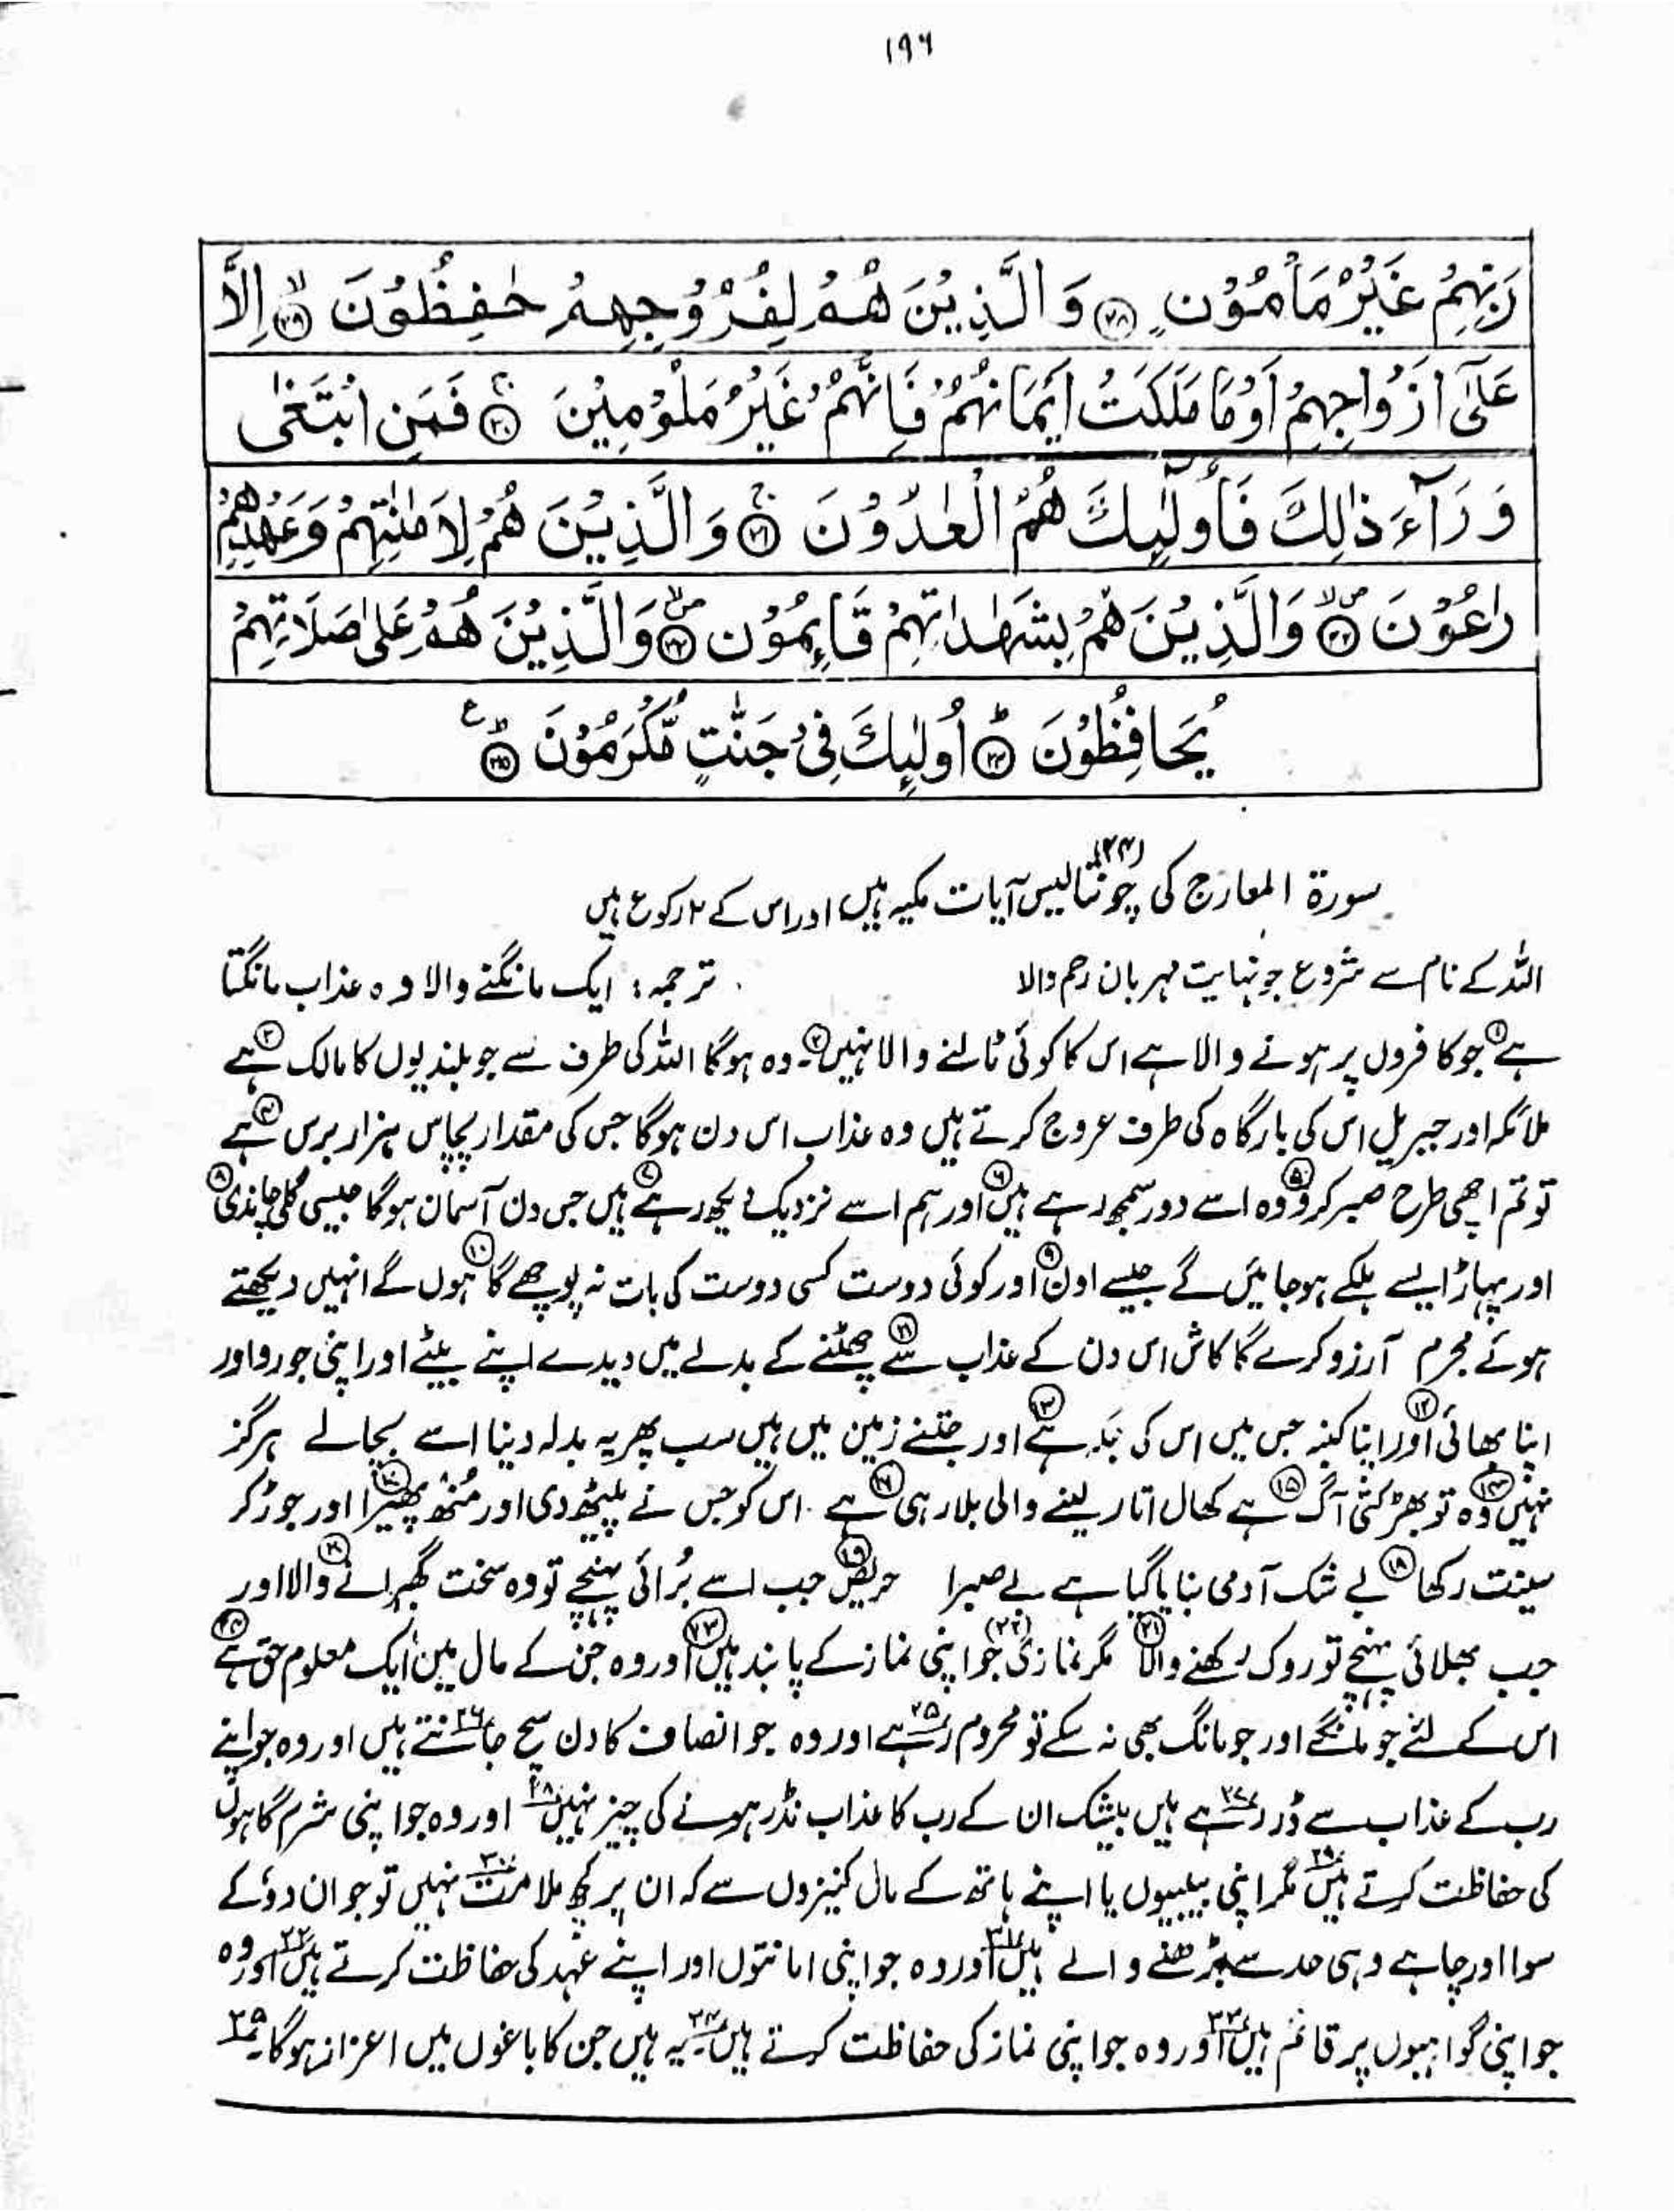 ۱۹۶
رَبِّهِمْ غَيْرُ مَاْمُوْنٍ ﴿۲۸﴾ وَالَّذِيْنَ هُمْ لِفُرُوْجِهِمْ حٰفِظُوْنَ ﴿۲۹﴾ اِلَّا
عَلٰٓى اَزْوَاجِهِمْ اَوْمَا مَلَكَتْ اَيْمَانُهُمْ فَاِنَّهُمْ غَيْرُ مَلُوْمِيْنَ ﴿۳۰﴾ فَمَنِ ابْتَغٰى
وَرَآءَ ذٰلِكَ فَاُولٰٓئِكَ هُمُ الْعٰدُوْنَ ﴿۳۱﴾ وَالَّذِيْنَ هُمْ لِاَمٰنٰتِهِمْ وَعَهْدِهِمْ
رٰعُوْنَ ﴿۳۲﴾ وَالَّذِيْنَ هُمْ بِشَهٰدٰتِهِمْ قَآئِمُوْنَ ﴿۳۳﴾ وَالَّذِيْنَ هُمْ عَلٰى صَلَاتِهِمْ
يُحَافِظُوْنَ ﴿۳۴﴾ اُولٰٓئِكَ فِىْ جَنّٰتٍ مُّكْرَمُوْنَ ﴿۳۵﴾ ع
سورۃ المعارج کی چونتالیس (۴۴) آیات مکیہ ہیں اور اس کے ۲ رکوع ہیں
اللہ کے نام سے شروع جو نہایت مہربان رحم والا ترجمہ: ایک مانگنے والا وہ عذاب مانگتا
ہے ① جو کافروں پر ہونے والا ہے اس کا کوئی ٹالنے والا نہیں ② ۔ وہ ہوگا اللہ کی طرف سے جو بلندیوں کا مالک ہے ③
ملائکہ اور جبریل اس کی بارگاہ کی طرف عروج کرتے ہیں وہ عذاب اس دن ہوگا جس کی مقدار پچاس ہزار برس ہے ④
تو تم اچھی طرح صبر کرو ⑤ وہ اسے دور سمجھ رہے ہیں ⑥ اور ہم اسے نزدیک دیکھ رہے ہیں ⑦ جس دن آسمان ہوگا جیسی گلی چاندی ⑧
اور پہاڑ ایسے ہلکے ہوجائیں گے جیسے اون ⑨ اور کوئی دوست کسی دوست کی بات نہ پوچھے گا ⑩ ہوں گے انہیں دیکھتے
ہوئے مجرم آرزو کرے گا کاش اس دن کے عذاب سے ⑪ چھٹنے کے بدلے میں دیدے اپنے بیٹے اور اپنی جورو اور
اپنا بھائی ⑫ اور اپنا کنبہ جس میں اس کی جگہ ہے ⑬ اور جتنے زمین میں ہیں سب پھر یہ بدلہ دینا اسے بچالے ہرگز
نہیں ⑭ وہ تو بھڑکتی آگ ہے ⑮ کھال اتار لینے والی بلارہی ہے ⑯ اس کو جس نے پیٹھ دی اور منھ پھیرا ⑰ اور جوڑ کر
سینت رکھا ⑱ بے شک آدمی بنایا گیا ہے بے صبرا حریص ⑲ جب اسے بُرائی پہنچے تو وہ سخت گھبرانے والا ⑳ اور
جب بھلائی پہنچے تو روک رکھنے والا (۲۱) مگر نمازی (۲۲) جو اپنی نماز کے پابند ہیں (۲۳) اور وہ جن کے مال میں ایک معلوم حق ہے (۲۴)
اس کے لئے جو مانگے اور جو مانگ بھی نہ سکے تو محروم رہے ۲۵ اور وہ جو انصاف کا دن سچ جانتے ۲۶ ہیں اور وہ جو اپنے
رب کے عذاب سے ڈر رہے ۲۷ ہیں بیشک ان کے رب کا عذاب نڈر ہونے کی چیز نہیں ۲۸ اور وہ جو اپنی شرم گاہوں
کی حفاظت کرتے ہیں ۲۹ مگر اپنی بیبیوں یا اپنے ہاتھ کے مال کنیزوں سے کہ ان پر کچھ ملامت ۳۰ نہیں تو جو ان دو کے
سوا اور چاہے وہی حد سے بڑھنے والے ہیں ۳۱ اور وہ جو اپنی امانتوں اور اپنے عہد کی حفاظت کرتے ہیں ۳۲ اور وہ
جو اپنی گواہیوں پر قائم ہیں ۳۳ اور وہ جو اپنی نماز کی حفاظت کرتے ہیں ۳۴ یہ ہیں جن کا باغوں میں اعزاز ہوگا ۳۵